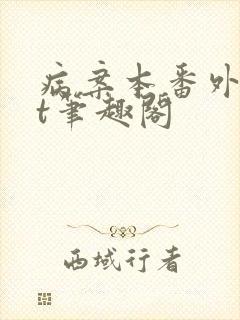 病案本番外
t笔趣阁
西域行者